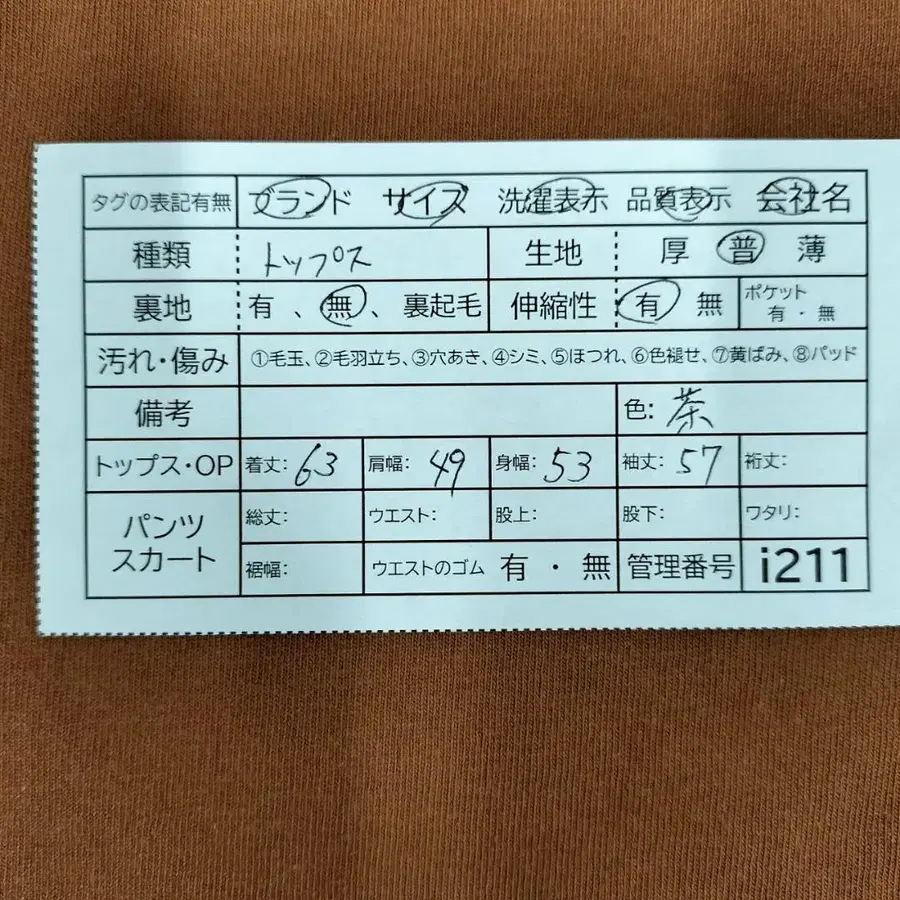 タグの表記有無 ブランド サイズ 洗濯表示 品質表示 会社名
種類 トップス 生地 厚 普 薄
裏地 有 、 無 、 裏起毛 伸縮性 有 無 ポケット 有 ・ 無
汚れ・傷み ①毛玉、②毛羽立ち、③穴あき、④シミ、⑤ほつれ、⑥色褪せ、⑦黄ばみ、⑧パッド
備考 色: 茶
トップス・OP 着丈: 63 肩幅: 49 身幅: 53 袖丈: 57 裄丈:
パンツ スカート 総丈: ウエスト: 股上: 股下: ワタリ:
裾幅: ウエストのゴム 有 ・ 無 管理番号 i211